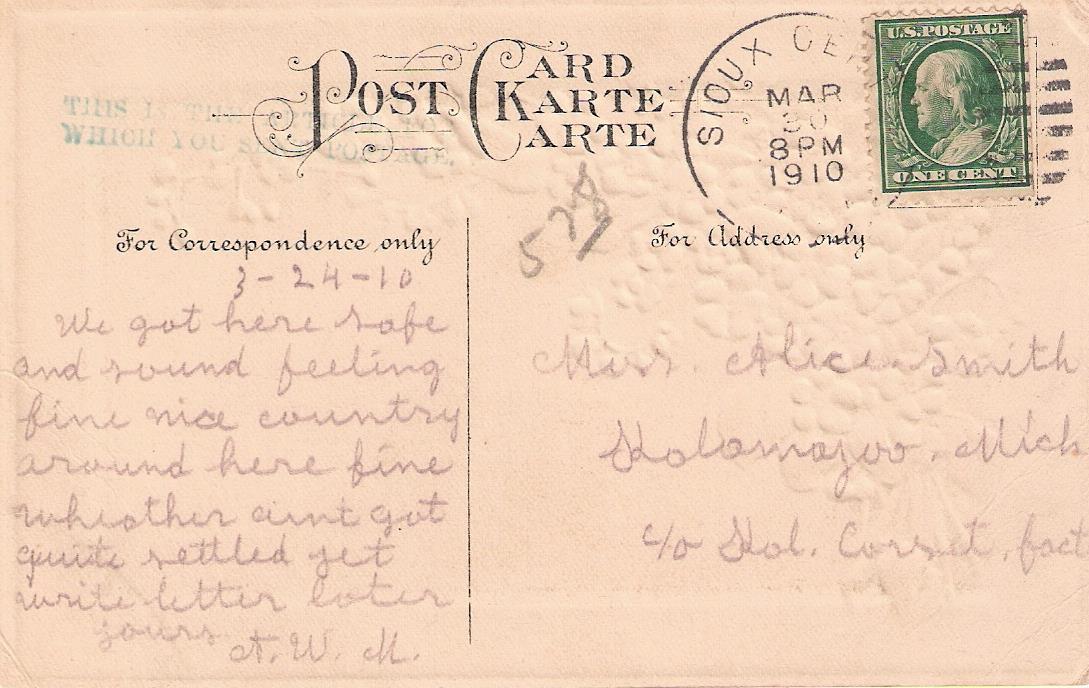 POST CARD
KARTE
CARTE
THIS IS THE ARTICLE FOR
WHICH YOU SENT POSTAGE.
SIOUX CE
MAR
30
8PM
1910
U.S.POSTAGE
ONE CENT
578
For Correspondence only
3-24-10
We got here safe
and sound feeling
fine nice country
around here fine
wheother aint got
quite settled yet
write letter later
yours
A. W. M.
For Address only
Miss. Alice Smith
Kalamazoo, Mich
c/o Kal. Corset, fact